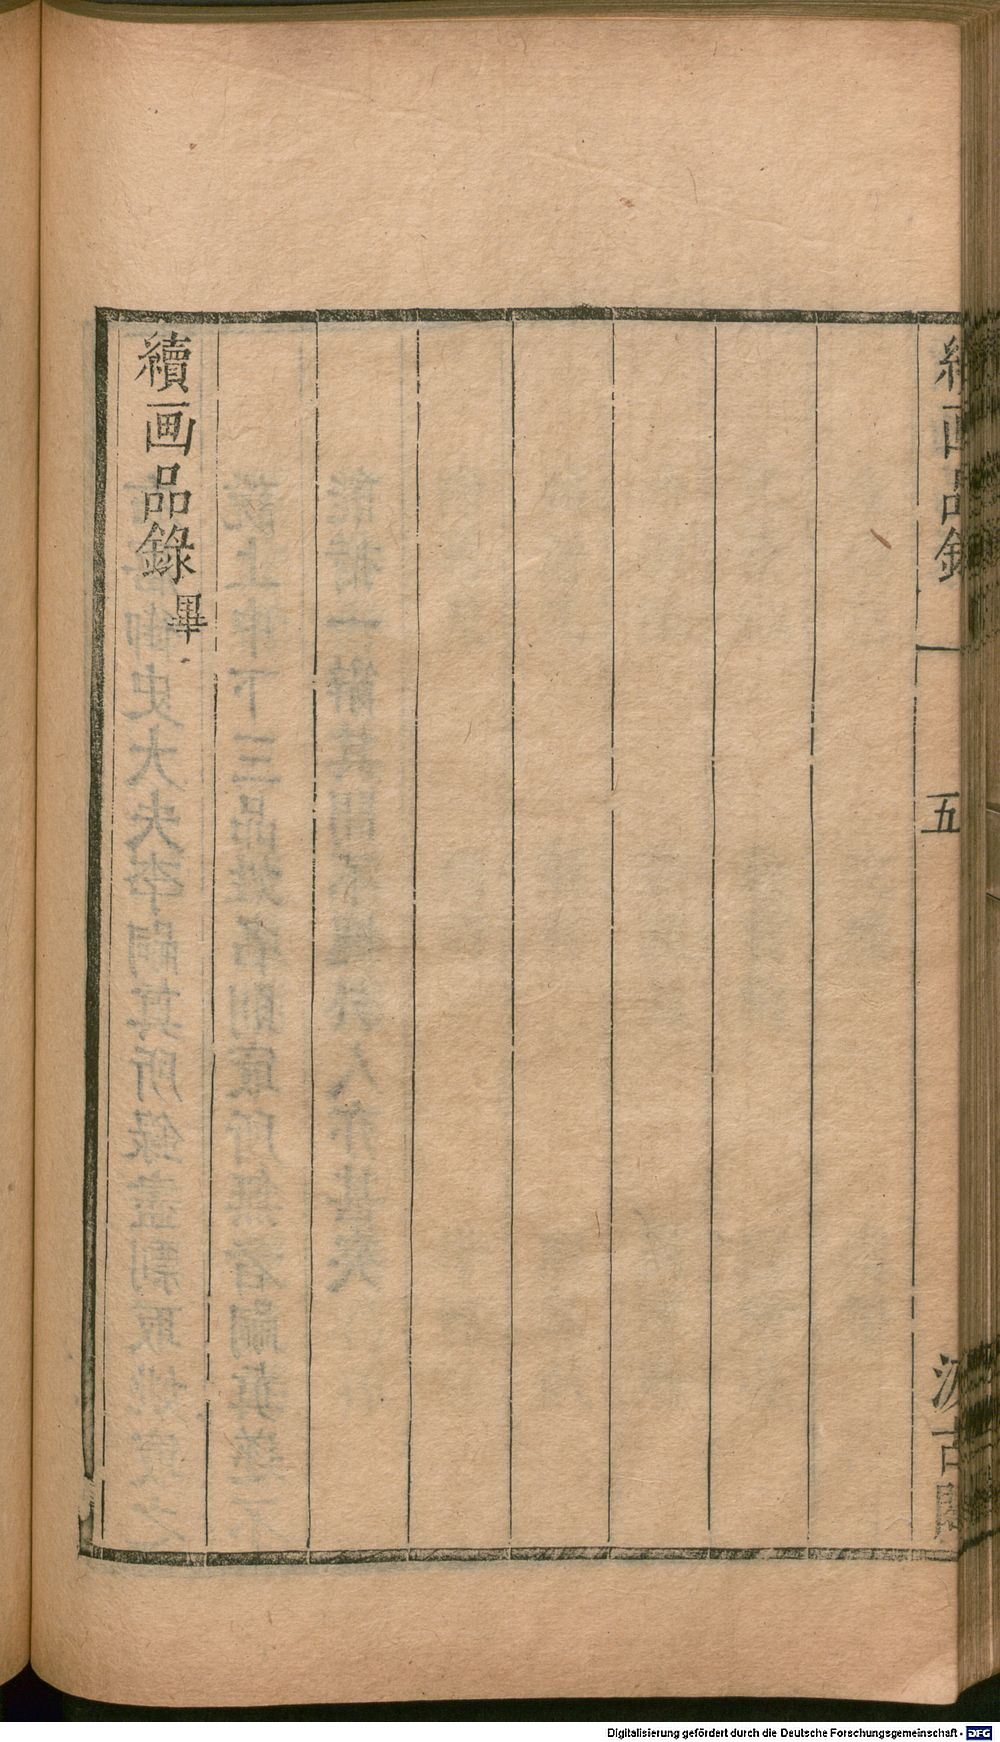 續画品錄
五
汲古閣
續画品錄畢
Digitalisierung gefördert durch die Deutsche Forschungsgemeinschaft - DFG